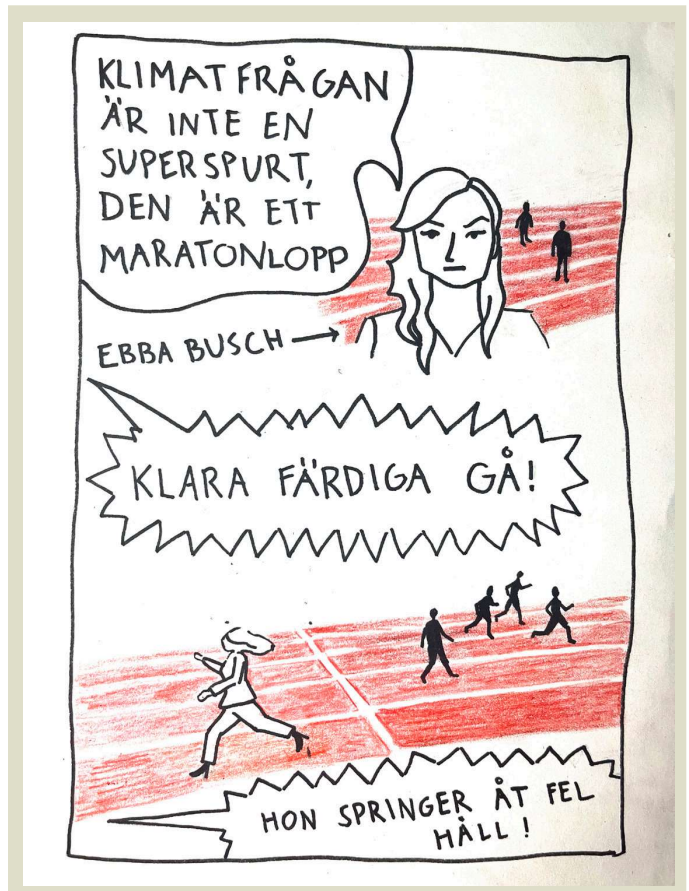 KLIMATFRÅGAN
ÄR INTE EN
SUPERSPURT,
DEN ÄR ETT
MARATONLOPP
EBBA BUSCH
KLARA FÄRDIGA GÅ!
HON SPRINGER ÅT FEL
HÅLL!